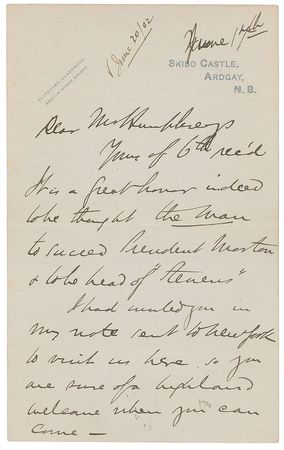 √ June 20/02
June 17th
SKIBO CASTLE,
ARDGAY,
N. B.
Dear Mr Humphreys
Yours of 6th rec'd
It is a great honor indeed
to be thought the man
to succeed President Morton
& to be head of "Stevens"
I had invited you in
my note sent to New York
to visit us here so you
are sure of a highland
welcome when you can
come —